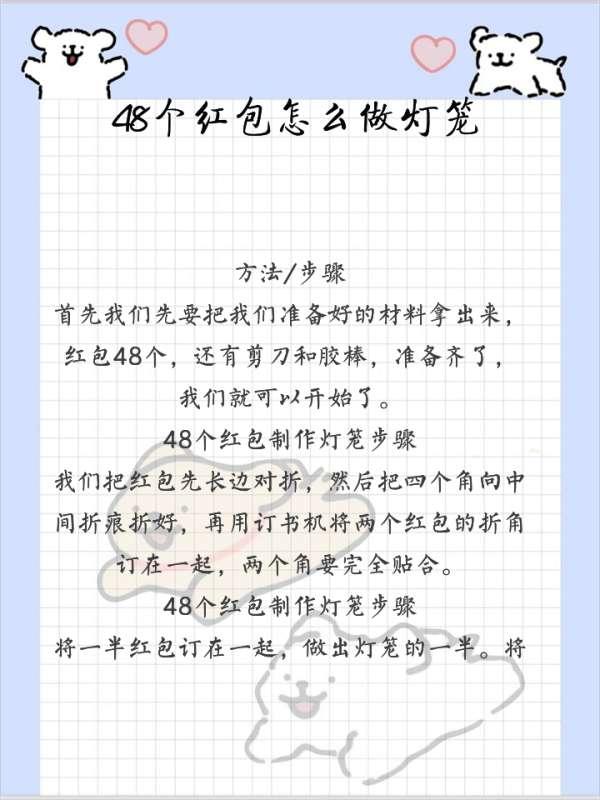 48个红包怎么做灯笼
方法/步骤
首先我们先要把我们准备好的材料拿出来，
红包48个，还有剪刀和胶棒，准备齐了，
我们就可以开始了。
48个红包制作灯笼步骤
我们把红包先长边对折，然后把四个角向中
间折痕折好，再用订书机将两个红包的折角
订在一起，两个角要完全贴合。
48个红包制作灯笼步骤
将一半红包订在一起，做出灯笼的一半。将